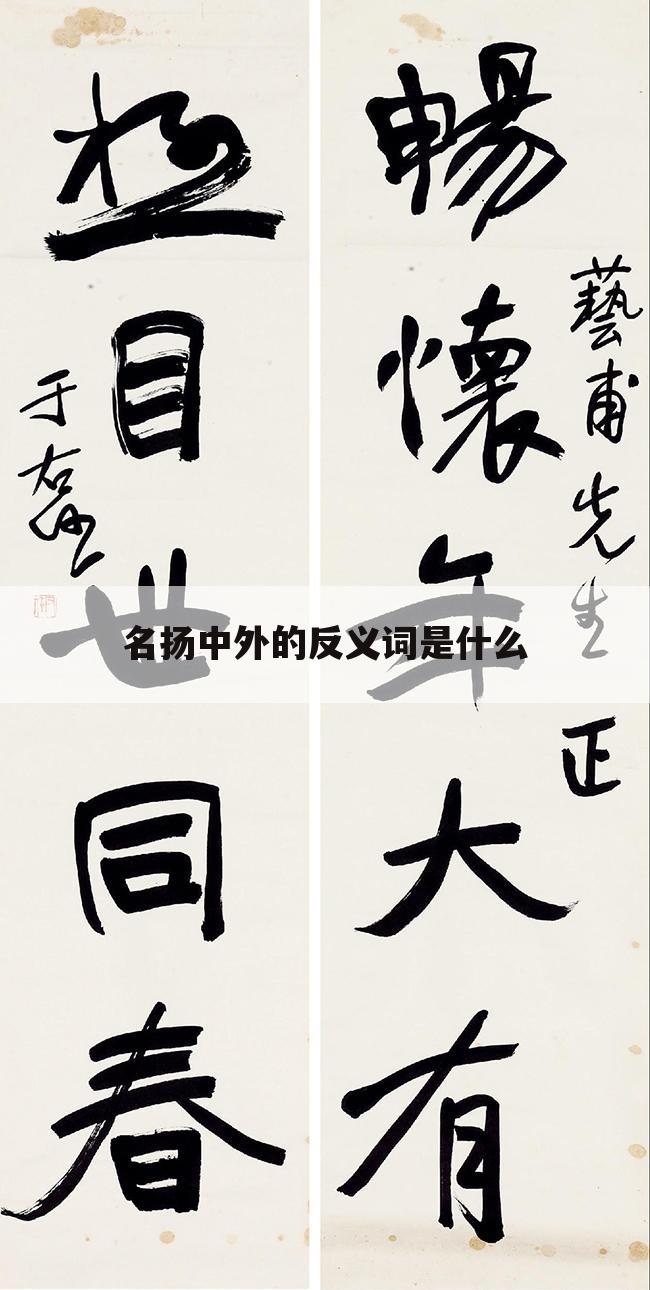 藝甫先生正
暢懷年大有
極目世同春
于右任
名扬中外的反义词是什么